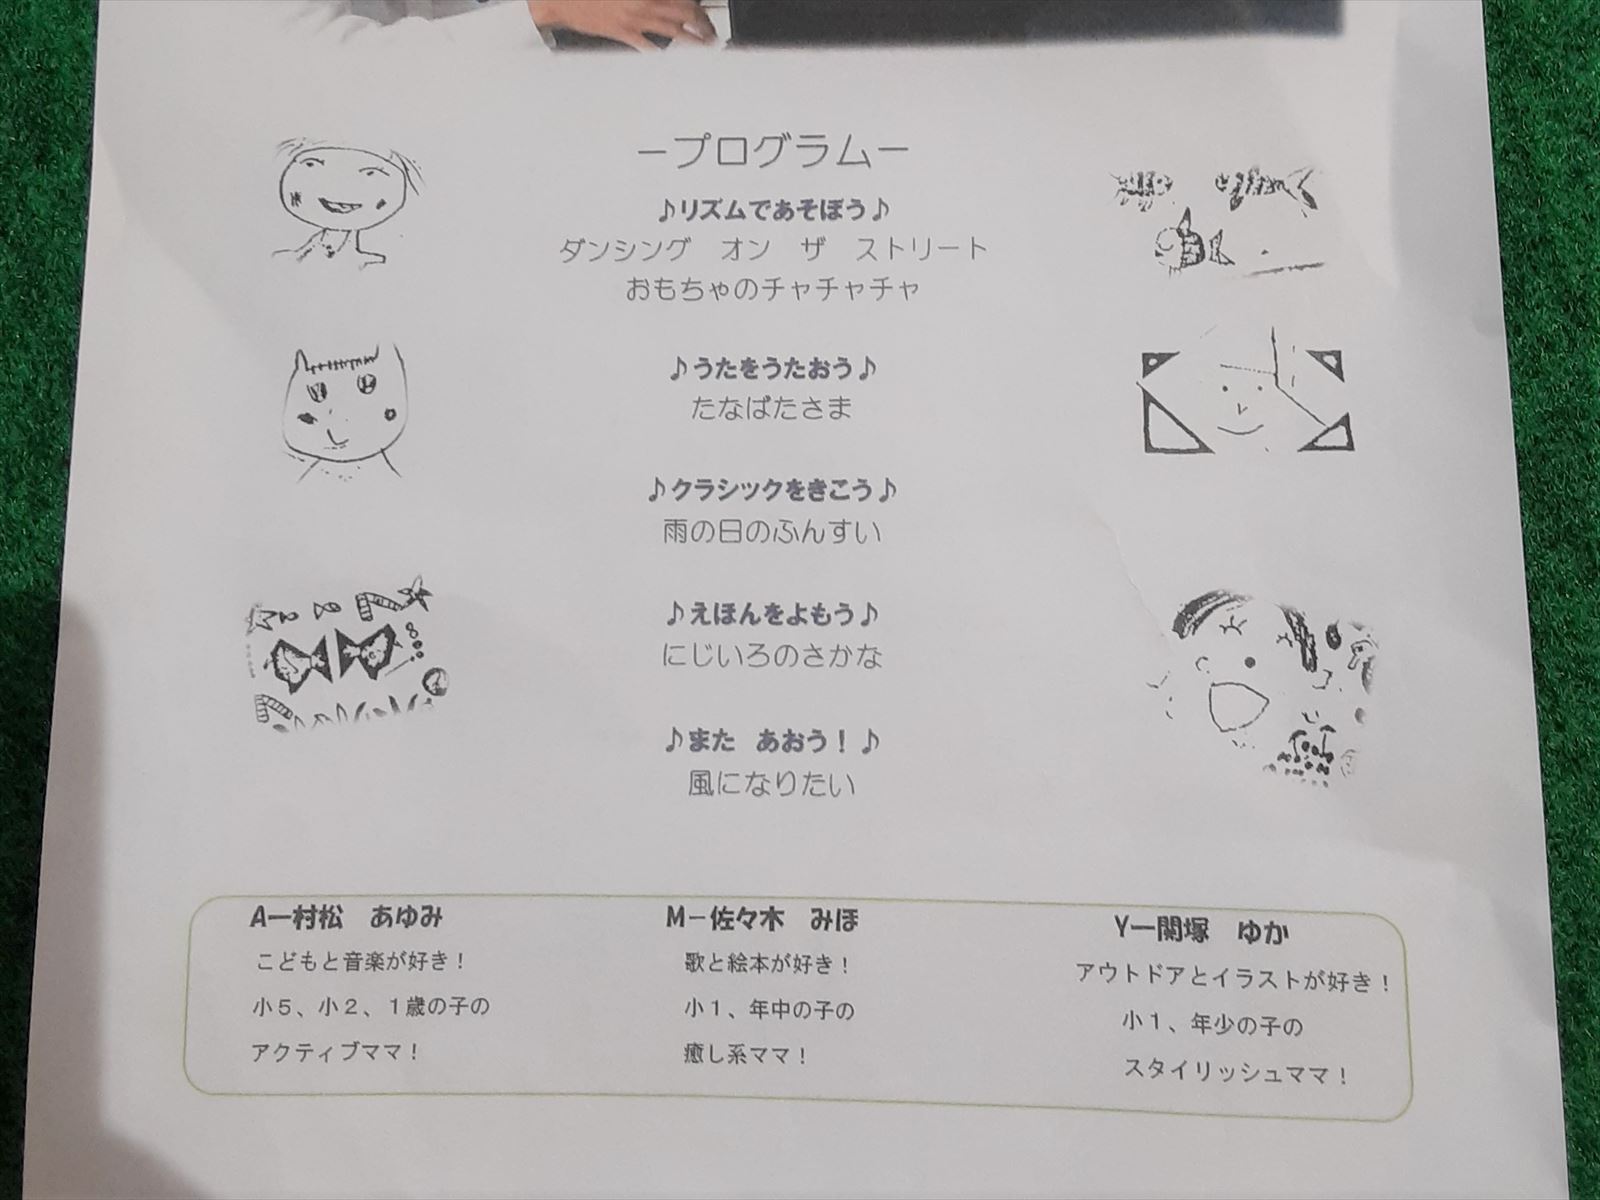 －プログラム－
♪リズムであそぼう♪
ダンシング　オン　ザ　ストリート
おもちゃのチャチャチャ
♪うたをうたおう♪
たなばたさま
♪クラシックをきこう♪
雨の日のふんすい
♪えほんをよもう♪
にじいろのさかな
♪また　あおう！♪
風になりたい
A－村松　あゆみ
こどもと音楽が好き！
小５、小２、１歳の子の
アクティブママ！
M－佐々木　みほ
歌と絵本が好き！
小１、年中の子の
癒し系ママ！
Y－関塚　ゆか
アウトドアとイラストが好き！
小１、年少の子の
スタイリッシュママ！